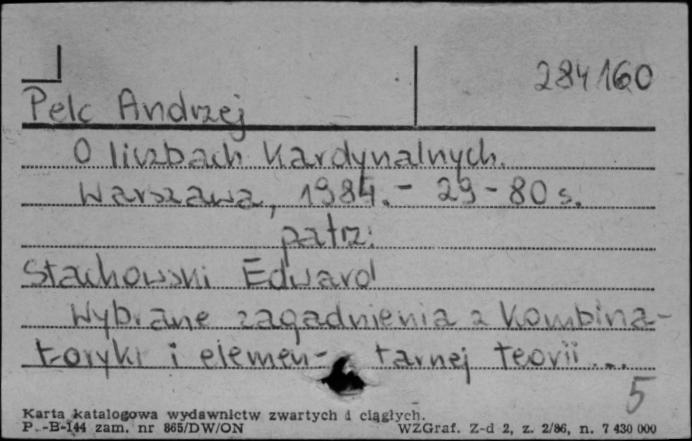 284160
Pelc Andrzej
O liczbach kardynalnych.
Warszawa, 1984. - 29-80 s.
patrz:
Stachowski Edward
Wybrane zagadnienia z kombina-
toryki i elemen- tarnej teorii ...
5
Karta katalogowa wydawnictw zwartych i ciągłych.
P.-B-144 zam. nr 865/DW/ON WZGraf. Z-d 2, z. 2/86, n. 7 430 000